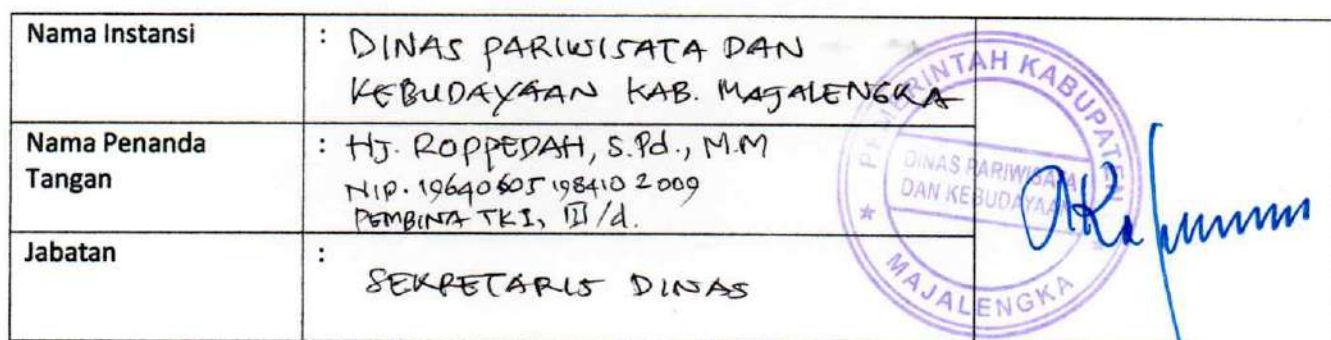 Nama Instansi : DINAS PARIWISATA DAN
KEBUDAYAAN KAB. MAJALENGKA
Nama Penanda
Tangan : HJ. ROPPEDAH, S.Pd., M.M
NIP. 19640605 198410 2009
PEMBINA TK I, III/d.
Jabatan :
SEKRETARIS DINAS
PEMERINTAH KABUPATEN
DINAS PARIWISATA
DAN KEBUDAYAAN
MAJALENGKA